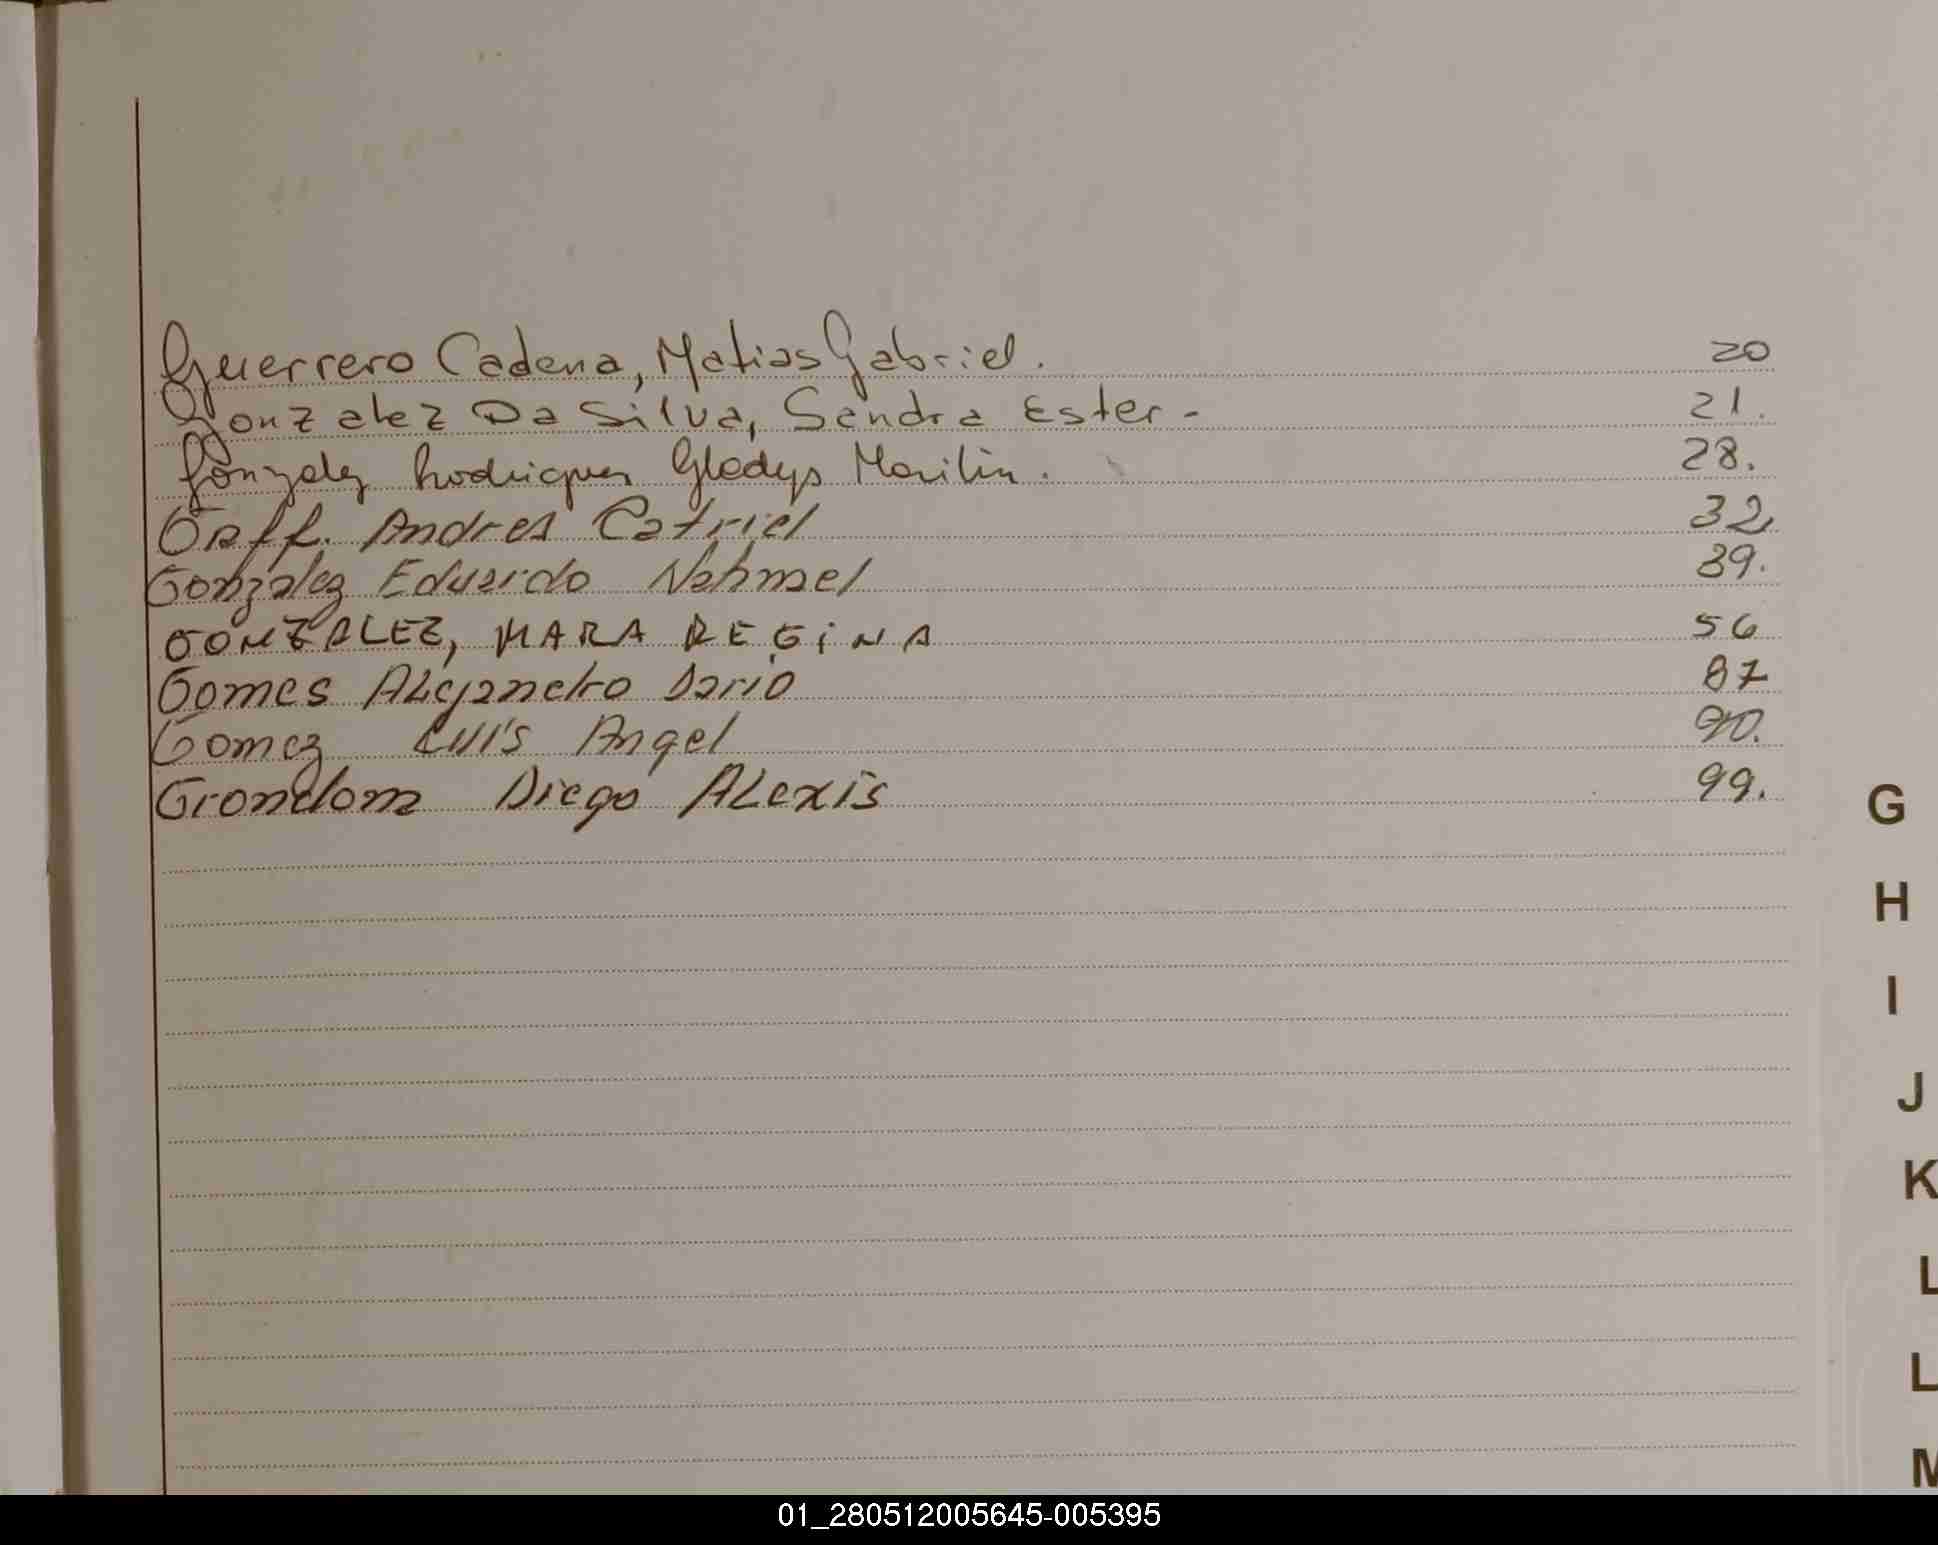 Guerrero Cadena, Matias Gabriel. 20
Gonzalez Da Silva, Sandra Ester - 21.
Gonzalez Rodriguez Gladys Marilin. 28.
Graff. Andres Catriel 32
Gonzalez Eduardo Nahuel 39.
GONZALEZ, MARA REGINA 56
Gomes Alejandro Dario 87
Gomez Luis Angel 90.
Grondona Diego Alexis 99.
G
H
I
J
K
L
L
M
01_280512005645-005395